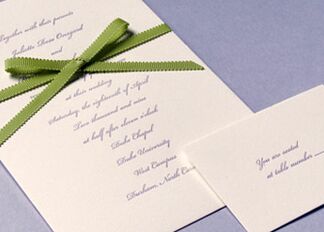 together with their parents
Juliette Rose
and
at their wedding
Saturday, the eighteenth of April
Two thousand and nine
at half after eleven o'clock
Duke Chapel
Duke University
West Campus
Durham, North Caro
You are seated
at table number